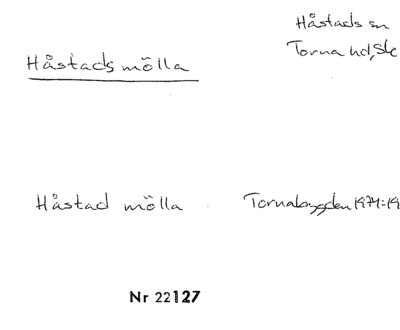 Håstads sn
Torna hd, Sk
Håstads mölla
Håstad mölla Tornabygden 1974:19
Nr 22127